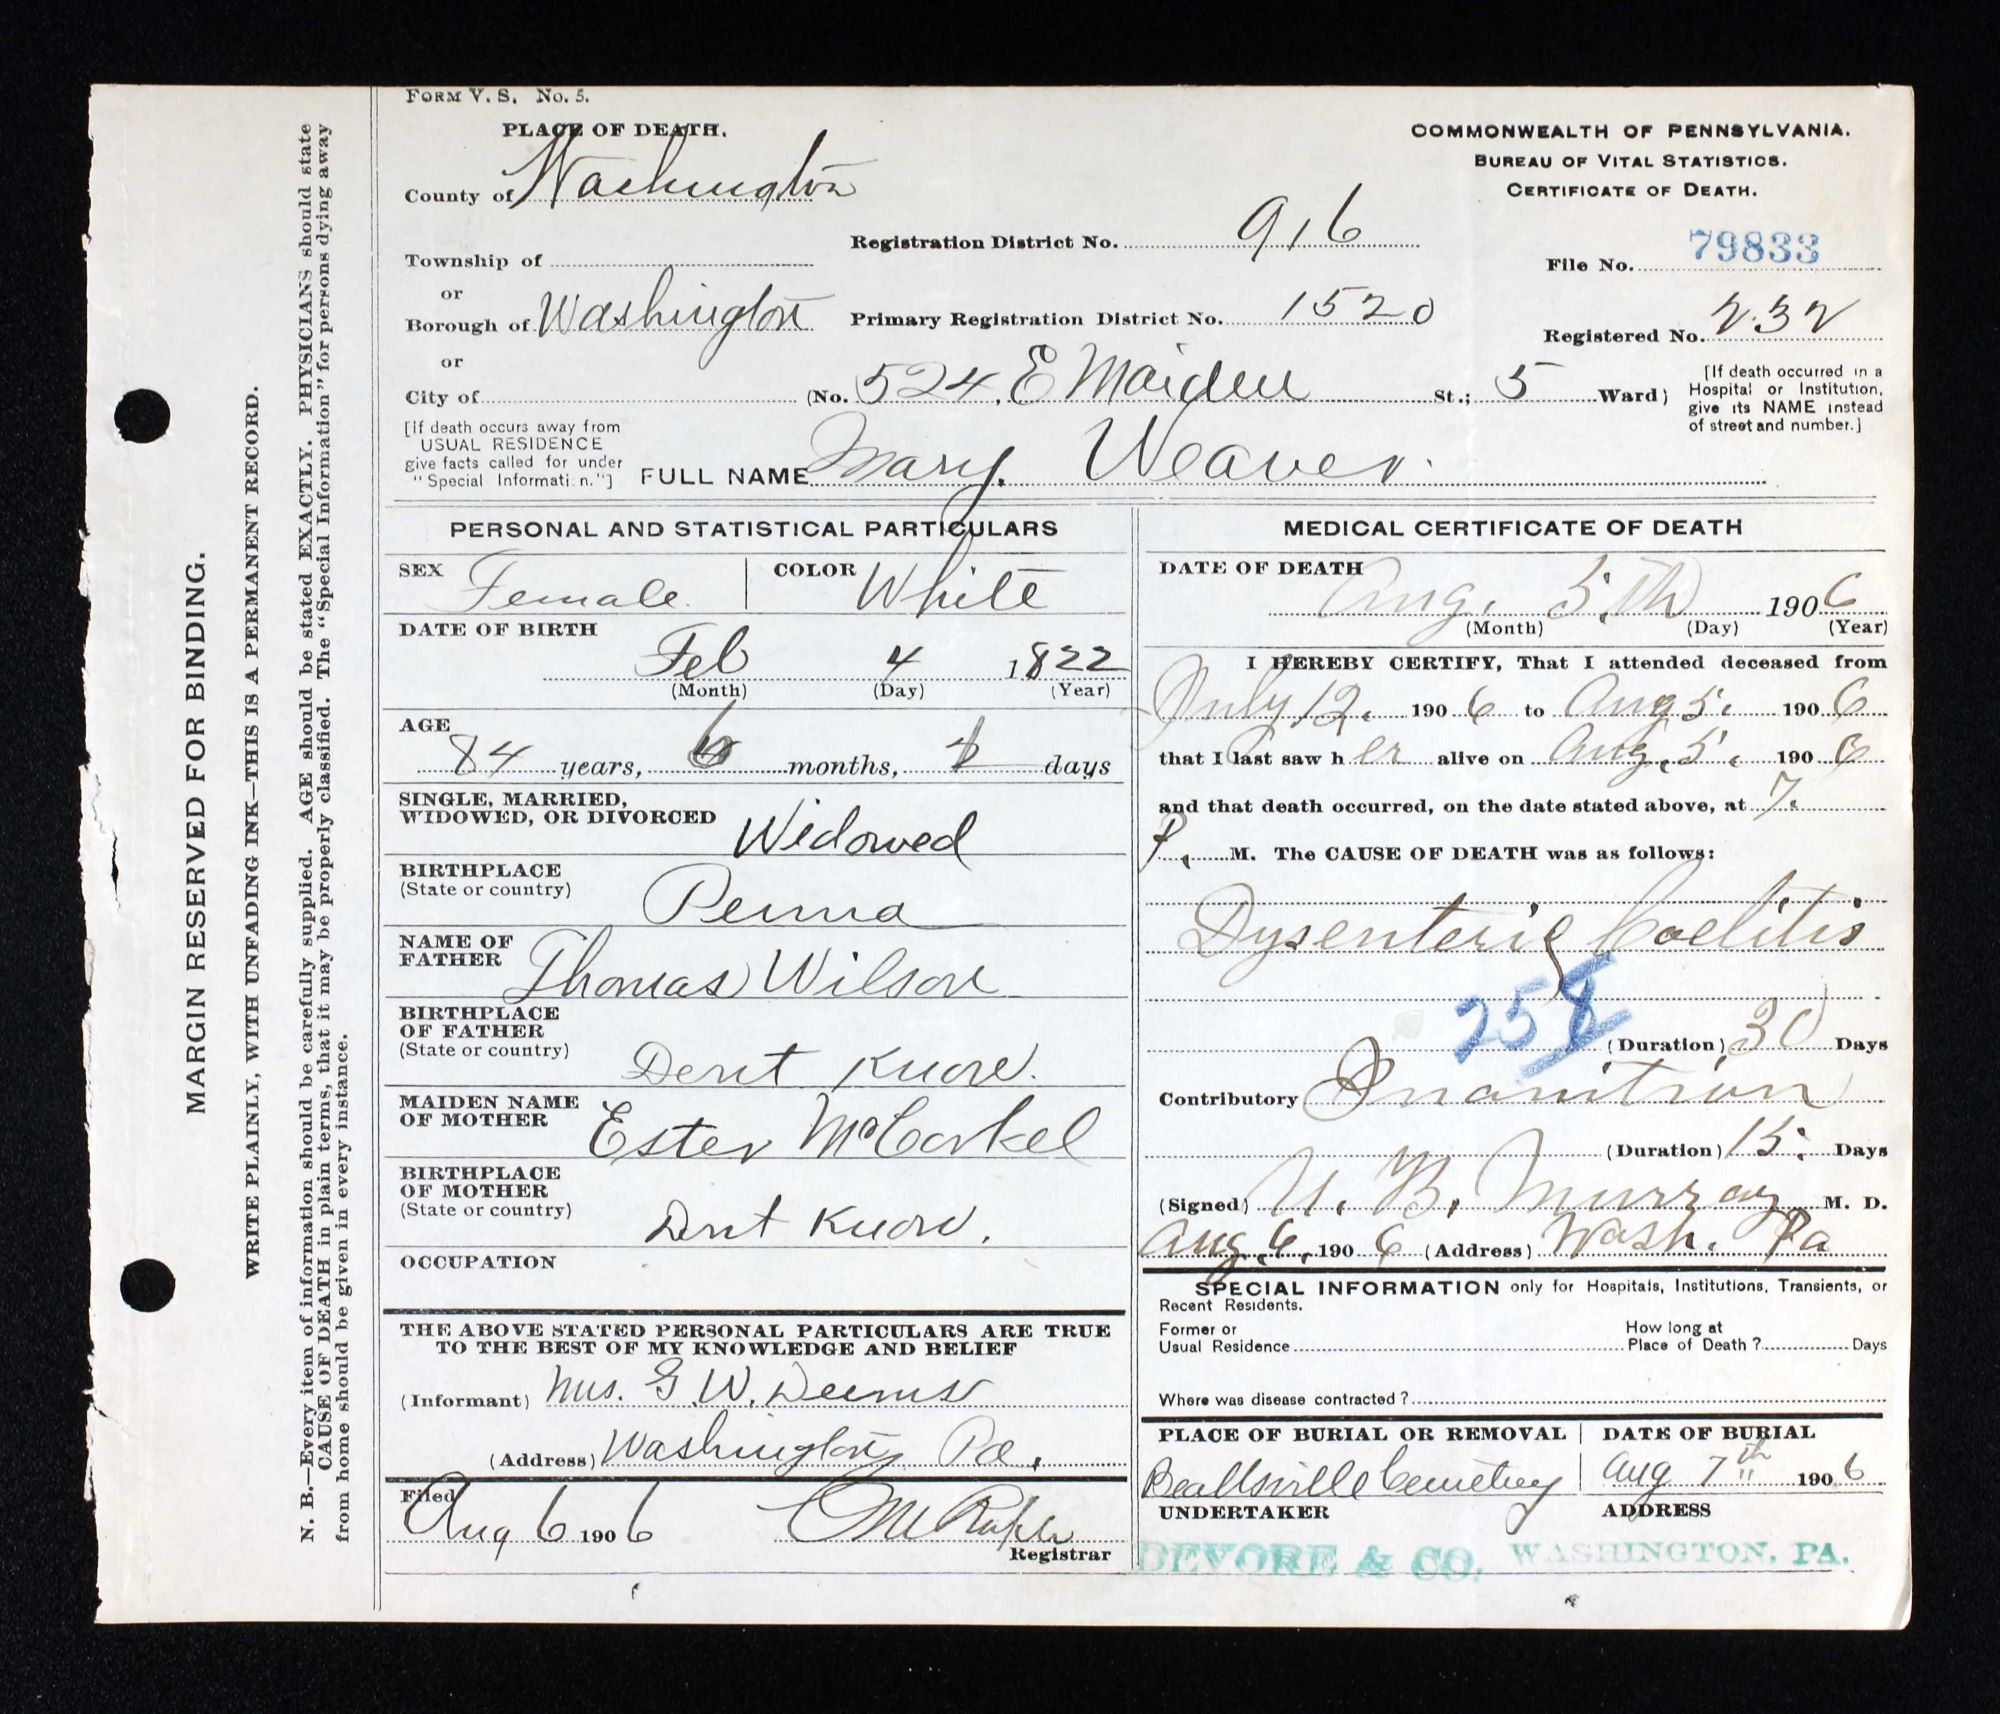 FORM V. S. No. 5.
PLACE OF DEATH.
County of Washington
Township of
or
Borough of Washington
or
City of
COMMONWEALTH OF PENNSYLVANIA.
BUREAU OF VITAL STATISTICS.
CERTIFICATE OF DEATH.
Registration District No. 916
File No. 79833
Primary Registration District No. 1520
Registered No. 232
(No. 524, E Maiden St.; 5 Ward)
[If death occurred in a
Hospital or Institution,
give its NAME instead
of street and number.]
[If death occurs away from
USUAL RESIDENCE
give facts called for under
"Special Informati.n."]
FULL NAME Mary. Weaver.
PERSONAL AND STATISTICAL PARTICULARS
SEX Female
COLOR White
DATE OF BIRTH
Feb 4 1822
(Month) (Day) (Year)
AGE
84 years, 6 months, 1 days
SINGLE, MARRIED,
WIDOWED, OR DIVORCED Widowed
BIRTHPLACE
(State or country) Penna
NAME OF
FATHER Thomas Wilson
BIRTHPLACE
OF FATHER
(State or country) Dont Know.
MAIDEN NAME
OF MOTHER Ester McCorkel
BIRTHPLACE
OF MOTHER
(State or country) Dont Know.
OCCUPATION
THE ABOVE STATED PERSONAL PARTICULARS ARE TRUE
TO THE BEST OF MY KNOWLEDGE AND BELIEF
(Informant) Mrs. G. W. Deems
(Address) Washington Pa.
Filed
Aug 6 1906
Registrar
MEDICAL CERTIFICATE OF DEATH
DATE OF DEATH
Aug. 5th 1906
(Month) (Day) (Year)
I HEREBY CERTIFY, That I attended deceased from
July 12, 1906 to Aug 5. 1906
that I last saw her alive on Aug. 5. 1906
and that death occurred, on the date stated above, at 7.
P. M. The CAUSE OF DEATH was as follows:
Dysenteric Coelitis
258
(Duration) 30 Days
Contributory Inanition
(Duration) 15. Days
(Signed) U. B. Murray M. D.
Aug. 6, 1906 (Address) Wash. Pa
SPECIAL INFORMATION only for Hospitals, Institutions, Transients, or
Recent Residents.
Former or
Usual Residence
How long at
Place of Death? Days
Where was disease contracted?
PLACE OF BURIAL OR REMOVAL
Beallsville Cemetery
DATE OF BURIAL
Aug 7th 1906
UNDERTAKER
DEVORE & CO.
ADDRESS
WASHINGTON, PA.
MARGIN RESERVED FOR BINDING.
WRITE PLAINLY, WITH UNFADING INK—THIS IS A PERMANENT RECORD.
N. B.—Every item of information should be carefully supplied. AGE should be stated EXACTLY. PHYSICIANS should state
CAUSE OF DEATH in plain terms, that it may be properly classified. The "Special Information" for persons dying away
from home should be given in every instance.